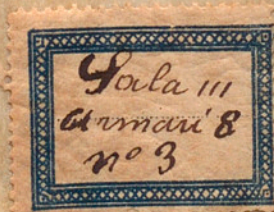 Sala III
armari 8
nº 3